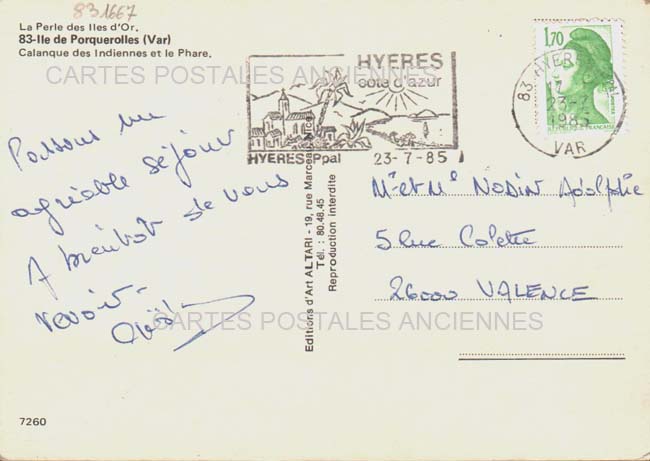 83 1667
La Perle des Iles d'Or.
83-Ile de Porquerolles (Var)
Calanque des Indiennes et le Phare.
CARTES POSTALES ANCIENNES
HYERES
cote d'azur
HYERES Ppal 23-7-85
1,70
83 HYERES
23-7
1985
VAR
Passons un
agréable séjour
A bientot de vous
revoir-
Editions d'Art ALTARI - 19, rue Marceau
Tél. : 80.48.45
Reproduction interdite
Mr et Me NODIN Adolphe
5 Rue Colette
26000 VALENCE
CARTES POSTALES ANCIENNES
7260